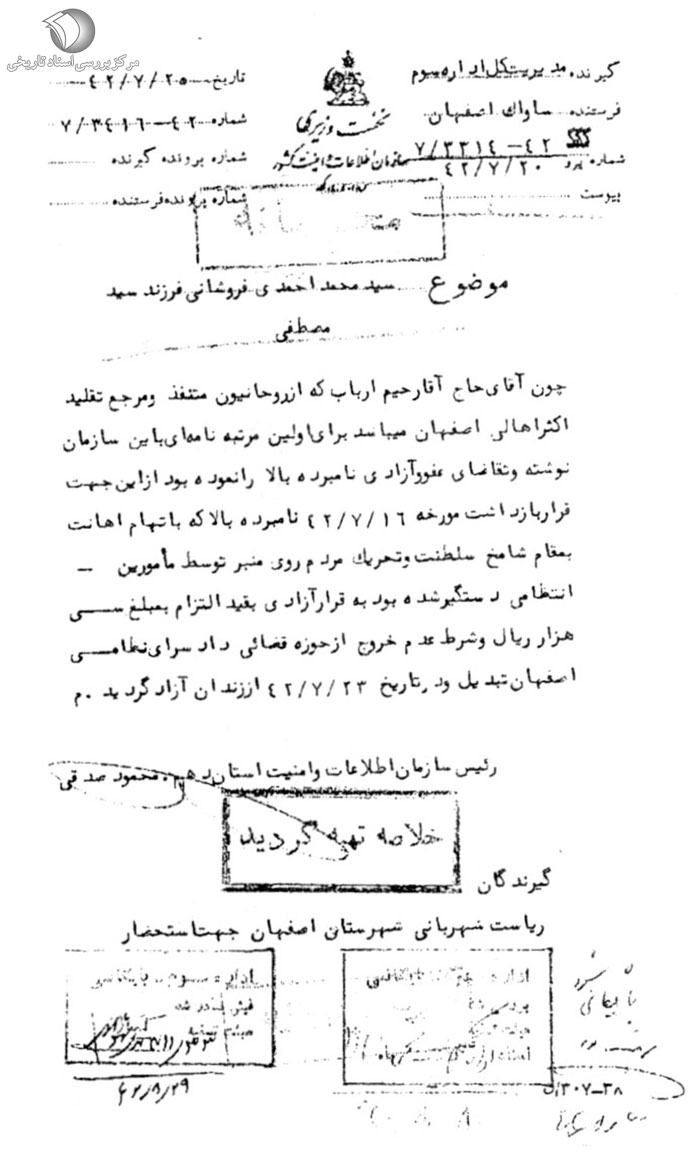 مرکز بررسی اسناد تاریخی
گیرنده مدیریت کل اداره سوم
فرستنده ساواک اصفهان
شماره پیرو ۷/۳۳۱٤-٤۲
٤۲/۷/۲۰
پیوست
نخست وزیری
سازمان اطلاعات و امنیت کشور
تاریخ ٤۲/۷/۲۵
شماره ۷/۳٤۱٦-٤۲
شماره پرونده گیرنده
شماره پرونده فرستنده
موضوع سید محمد احمدی فروشانی فرزند سید
مصطفی
چون آقای حاج آقا رحیم ارباب که از روحانیون متنفذ ومرجع تقلید
اکثراهالی اصفهان میباسد برای اولین مرتبه نامه‌ای باین سازمان
نوشته وتقاضای عفووآزادی نامبرده بالا رانموده بود ازاین جهت
قراربازداشت مورخه ٤۲/۷/۱٦ نامبرده بالاکه باتهام اهانت
بمقام شامخ سلطنت وتحریک مردم روی منبر توسط مأمورین –
انتظامی دستگیرشده بود به قرارآزادی بقید التزام بمبلغ سـی
هزار ریال وشرط عدم خروج ازحوزه قضائی دادسرای نظامـی
اصفهان تبدیل ودرتاریخ ٤۲/۷/۲۳ اززندان آزاد گردید .م
رئیس سازمان اطلاعات وامنیت استان دهم . محمود صدقی
خلاصه تهیه گردید
گیرندگان
ریاست شهربانی شهرستان اصفهان جهت استحضار
اداره سوم . بایگانی
فیش صادر شد
٤۲/۸/۲۹
اداره
بایگانی
بایگانی
۳۰۷-۳۸